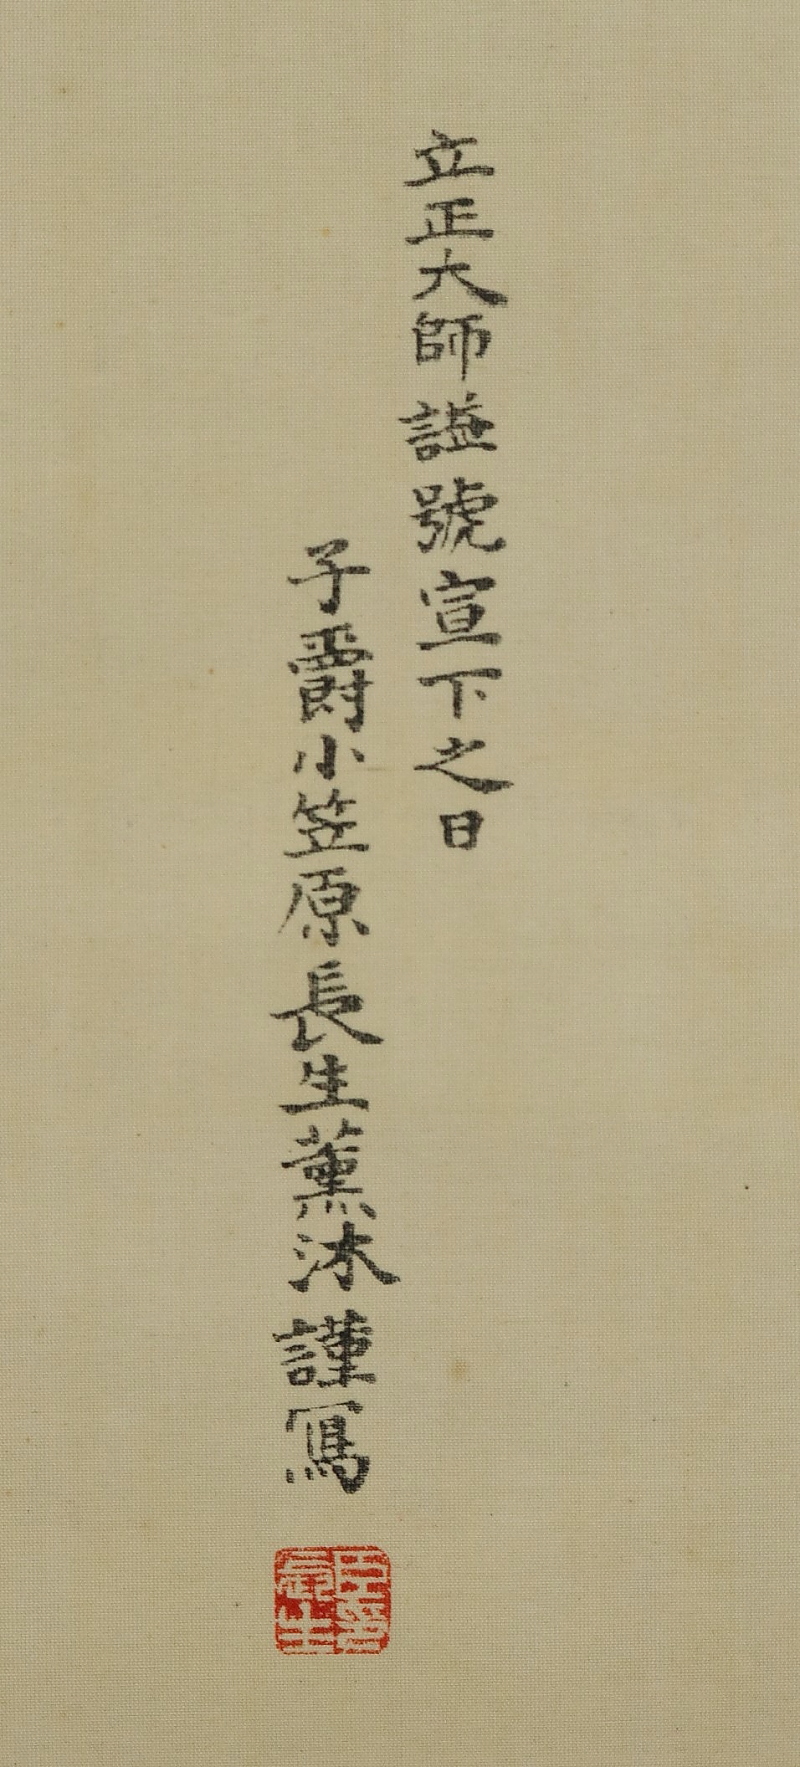 立正大師謚號宣下之日
子爵小笠原長生薰沐謹寫